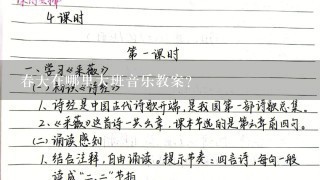 4课时
第一课时
一、学习《采薇》
春天在哪里大班音乐教案?
(一)初识《诗经》
1、诗经是中国古代诗歌开端,是我国第一部诗歌总集。
2、《采薇》这首诗一共六章,课本节选的是第六章前四句。
(二)诵读感知
1、结合注释,自由诵读。提示节奏:四言诗,每句一般
读成“二、二”节拍